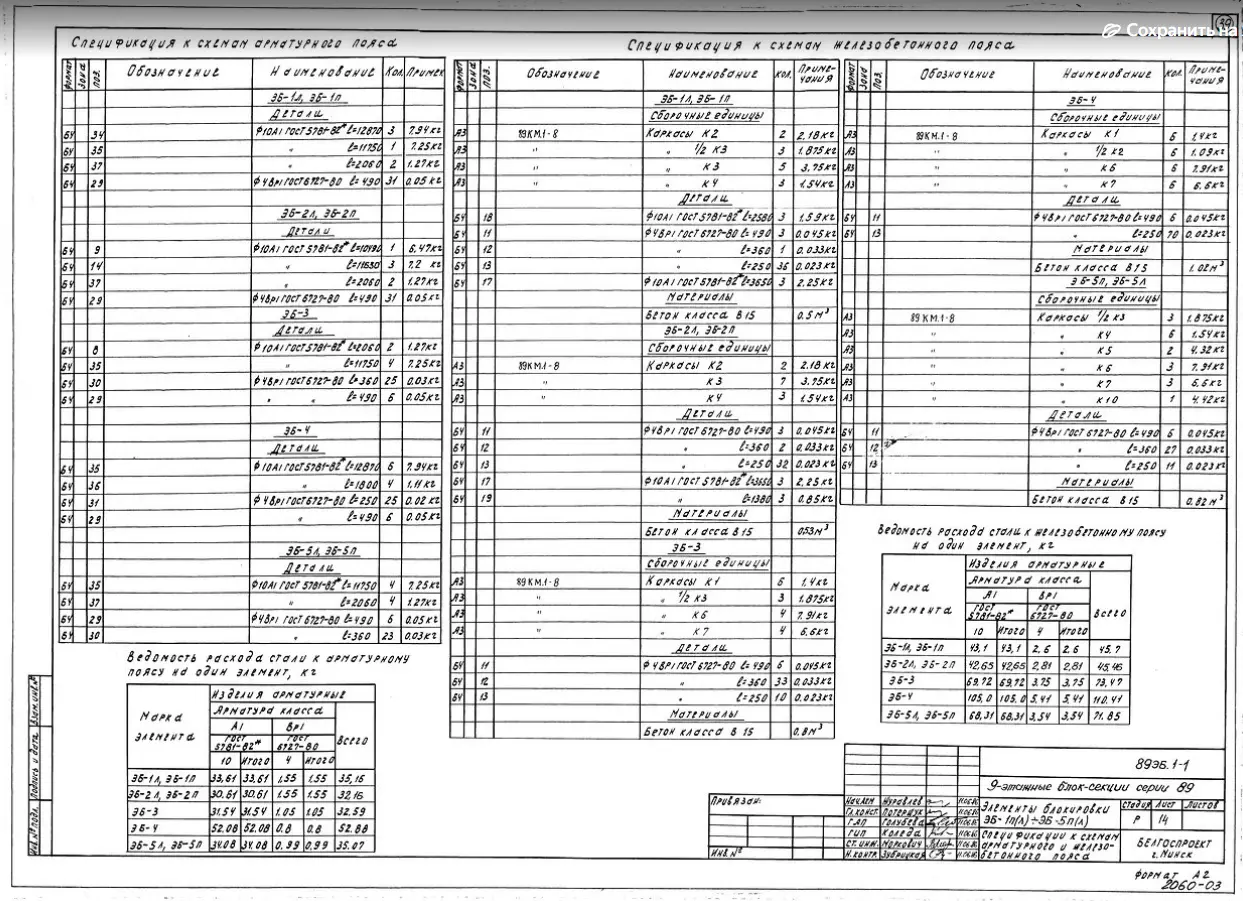 39
Сохранить на
Спецификация к схемам арматурного пояса
Формат Зона Поз. Обозначение Наименование Кол. Примеч
ЭБ-1л, ЭБ-1п
Детали
БЧ 34 Ф10АI ГОСТ 5781-82* ℓ=12870 3 7.94кг
БЧ 35 " ℓ=11750 1 7.25кг
БЧ 37 " ℓ=2060 2 1.27кг
БЧ 29 Ф4ВРI ГОСТ 6727-80 ℓ=490 31 0.05кг
ЭБ-2л, ЭБ-2п
Детали
БЧ 9 Ф10АI ГОСТ 5781-82* ℓ=10190 1 6.47кг
БЧ 14 " ℓ=11630 3 7.2 кг
БЧ 37 " ℓ=2060 2 1.27кг
БЧ 29 Ф4ВРI ГОСТ 6727-80 ℓ=490 31 0.05кг
ЭБ-3
Детали
БЧ 8 Ф10АI ГОСТ 5781-82* ℓ=2060 2 1.27кг
БЧ 35 " ℓ=11750 4 7.25кг
БЧ 30 Ф4ВРI ГОСТ 6727-80 ℓ=360 25 0.03кг
БЧ 29 " " ℓ=490 6 0.05кг
ЭБ-4
Детали
БЧ 35 Ф10АI ГОСТ 5781-82* ℓ=12870 6 7.94кг
БЧ 36 " ℓ=1800 4 1.11кг
БЧ 31 Ф4ВРI ГОСТ 6727-80 ℓ=250 25 0.02кг
БЧ 29 " ℓ=490 6 0.05кг
ЭБ-5л, ЭБ-5п
Детали
БЧ 35 Ф10АI ГОСТ 5781-82* ℓ=11750 4 7.25кг
БЧ 37 " ℓ=2060 4 1.27кг
БЧ 29 Ф4ВРI ГОСТ 6727-80 ℓ=490 6 0.05кг
БЧ 30 " ℓ=360 23 0.03кг
Ведомость расхода стали к арматурному
поясу на один элемент, кг
Марка элемента Изделия арматурные Всего
Арматура класса
АI ВРI
ГОСТ 5781-82* ГОСТ 6727-80
10 Итого 4 Итого
ЭБ-1л, ЭБ-1п 33,61 33,61 1.55 1.55 35,16
ЭБ-2л, ЭБ-2п 30.61 30.61 1.55 1.55 32.16
ЭБ-3 31.54 31.54 1.05 1.05 32.59
ЭБ-4 52.08 52.08 0.8 0.8 52.88
ЭБ-5л, ЭБ-5п 34.08 34.08 0.99 0.99 35.07
Спецификация к схемам железобетонного пояса
Формат Зона Поз. Обозначение Наименование Кол. Примечания
ЭБ-1л, ЭБ-1п
Сборочные единицы
А3 89КМ.1-8 Каркасы К2 2 2.18кг
А3 " " 1/2 К3 3 1.875кг
А3 " " К3 5 3,75кг
А3 " " К4 3 1.54кг
Детали
БЧ 18 Ф10АI ГОСТ 5781-82* ℓ=2580 3 1.59кг
БЧ 11 Ф4ВРI ГОСТ 6727-80 ℓ=490 3 0.045кг
БЧ 12 " ℓ=360 1 0.033кг
БЧ 13 " ℓ=250 36 0.023кг
БЧ 17 Ф10АI ГОСТ 5781-82* ℓ=3650 3 2.25кг
Материалы
Бетон класса В15 0.5м³
ЭБ-2л, ЭБ-2п
Сборочные единицы
А3 89КМ.1-8 Каркасы К2 2 2.18кг
А3 " К3 7 3.75кг
А3 " К4 3 1.54кг
Детали
БЧ 11 Ф4ВРI ГОСТ 6727-80 ℓ=490 3 0.045кг
БЧ 12 " ℓ=360 2 0.033кг
БЧ 13 " ℓ=250 32 0.023кг
БЧ 17 Ф10АI ГОСТ 5781-82* ℓ=3650 3 2.25кг
БЧ 19 " ℓ=1380 3 0.85кг
Материалы
Бетон класса В15 0.53м³
ЭБ-3
Сборочные единицы
А3 89КМ.1-8 Каркасы К1 6 1,4кг
А3 " " 1/2 К3 3 1.875кг
А3 " " К6 4 7.91кг
А3 " " К7 4 6.6кг
Детали
БЧ 11 Ф4ВРI ГОСТ 6727-80 ℓ=490 6 0.045кг
БЧ 12 " ℓ=360 33 0.033кг
БЧ 13 " ℓ=250 10 0.023кг
Материалы
Бетон класса В 15 0.8м³
Формат Зона Поз. Обозначение Наименование Кол. Примечания
ЭБ-4
Сборочные единицы
А3 89КМ.1-8 Каркасы К1 6 1,4кг
А3 " " 1/2 К2 6 1.09кг
А3 " " К6 6 7.91кг
А3 " " К7 6 6.6кг
Детали
БЧ 11 Ф4ВРI ГОСТ 6727-80 ℓ=490 6 0.045кг
БЧ 13 " ℓ=250 70 0.023кг
Материалы
Бетон класса В15 1.02м³
ЭБ-5п, ЭБ-5л
Сборочные единицы
А3 89КМ.1-8 Каркасы 1/2 К3 3 1.875кг
А3 " К4 6 1.54кг
А3 " К5 2 4.32кг
А3 " К6 3 7.91кг
А3 " К7 3 6,6кг
А3 " К10 1 4.42кг
Детали
БЧ 11 Ф4ВРI ГОСТ 6727-80 ℓ=490 6 0.045кг
БЧ 12 " ℓ=360 27 0.033кг
БЧ 13 " ℓ=250 11 0.023кг
Материалы
Бетон класса В15 0.82м³
Ведомость расхода стали к железобетонному поясу
на один элемент, кг
Марка элемента Изделия арматурные Всего
Арматура класса
АI ВРI
ГОСТ 5781-82* ГОСТ 6727-80
10 Итого 4 Итого
ЭБ-1л, ЭБ-1п 43,1 43,1 2,6 2,6 45.7
ЭБ-2л, ЭБ-2п 42,65 42,65 2,81 2,81 45,46
ЭБ-3 69.72 69.72 3.75 3.75 73,47
ЭБ-4 105,0 105.0 5.41 5,41 110.41
ЭБ-5л, ЭБ-5п 68,31 68,31 3,54 3,54 71.85
Взам.инв.№
Подпись и дата
Инв.№ подл.
Привязан:
Инв.№
89ЭБ.1-1
9-этажные блок-секции серии 89
Нач.АПМ Журавлев
Гл.конст. Потерщук
ГАП Голубева
ГИП Коледа
Ст.инж. Маркович
Н.контр. Зубрицкая
Элементы блокировки
ЭБ-1п(л)÷ЭБ-5п(л)
Стадия Лист Листов
Р 14
Спецификации к схемам
арматурного и железо-
бетонного пояса
БЕЛГОСПРОЕКТ
г.Минск
Формат А2
2060-03